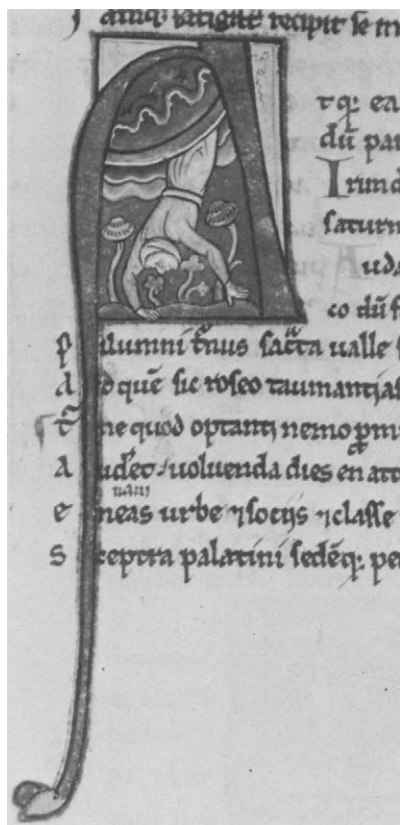 recipit se in
A tq; ea
dū par
Irund
saturn
Auda
co dū f
P ilumni t̄nus sac̄ta ualle s
A d quē sic roseo taumantias
T̄ ne quod optanti nemo ꝓmi
A udet uoluenda dies en att
e neas urbe ⁊ socijs ⁊ classe
S ceptra palatini sedēq; pe